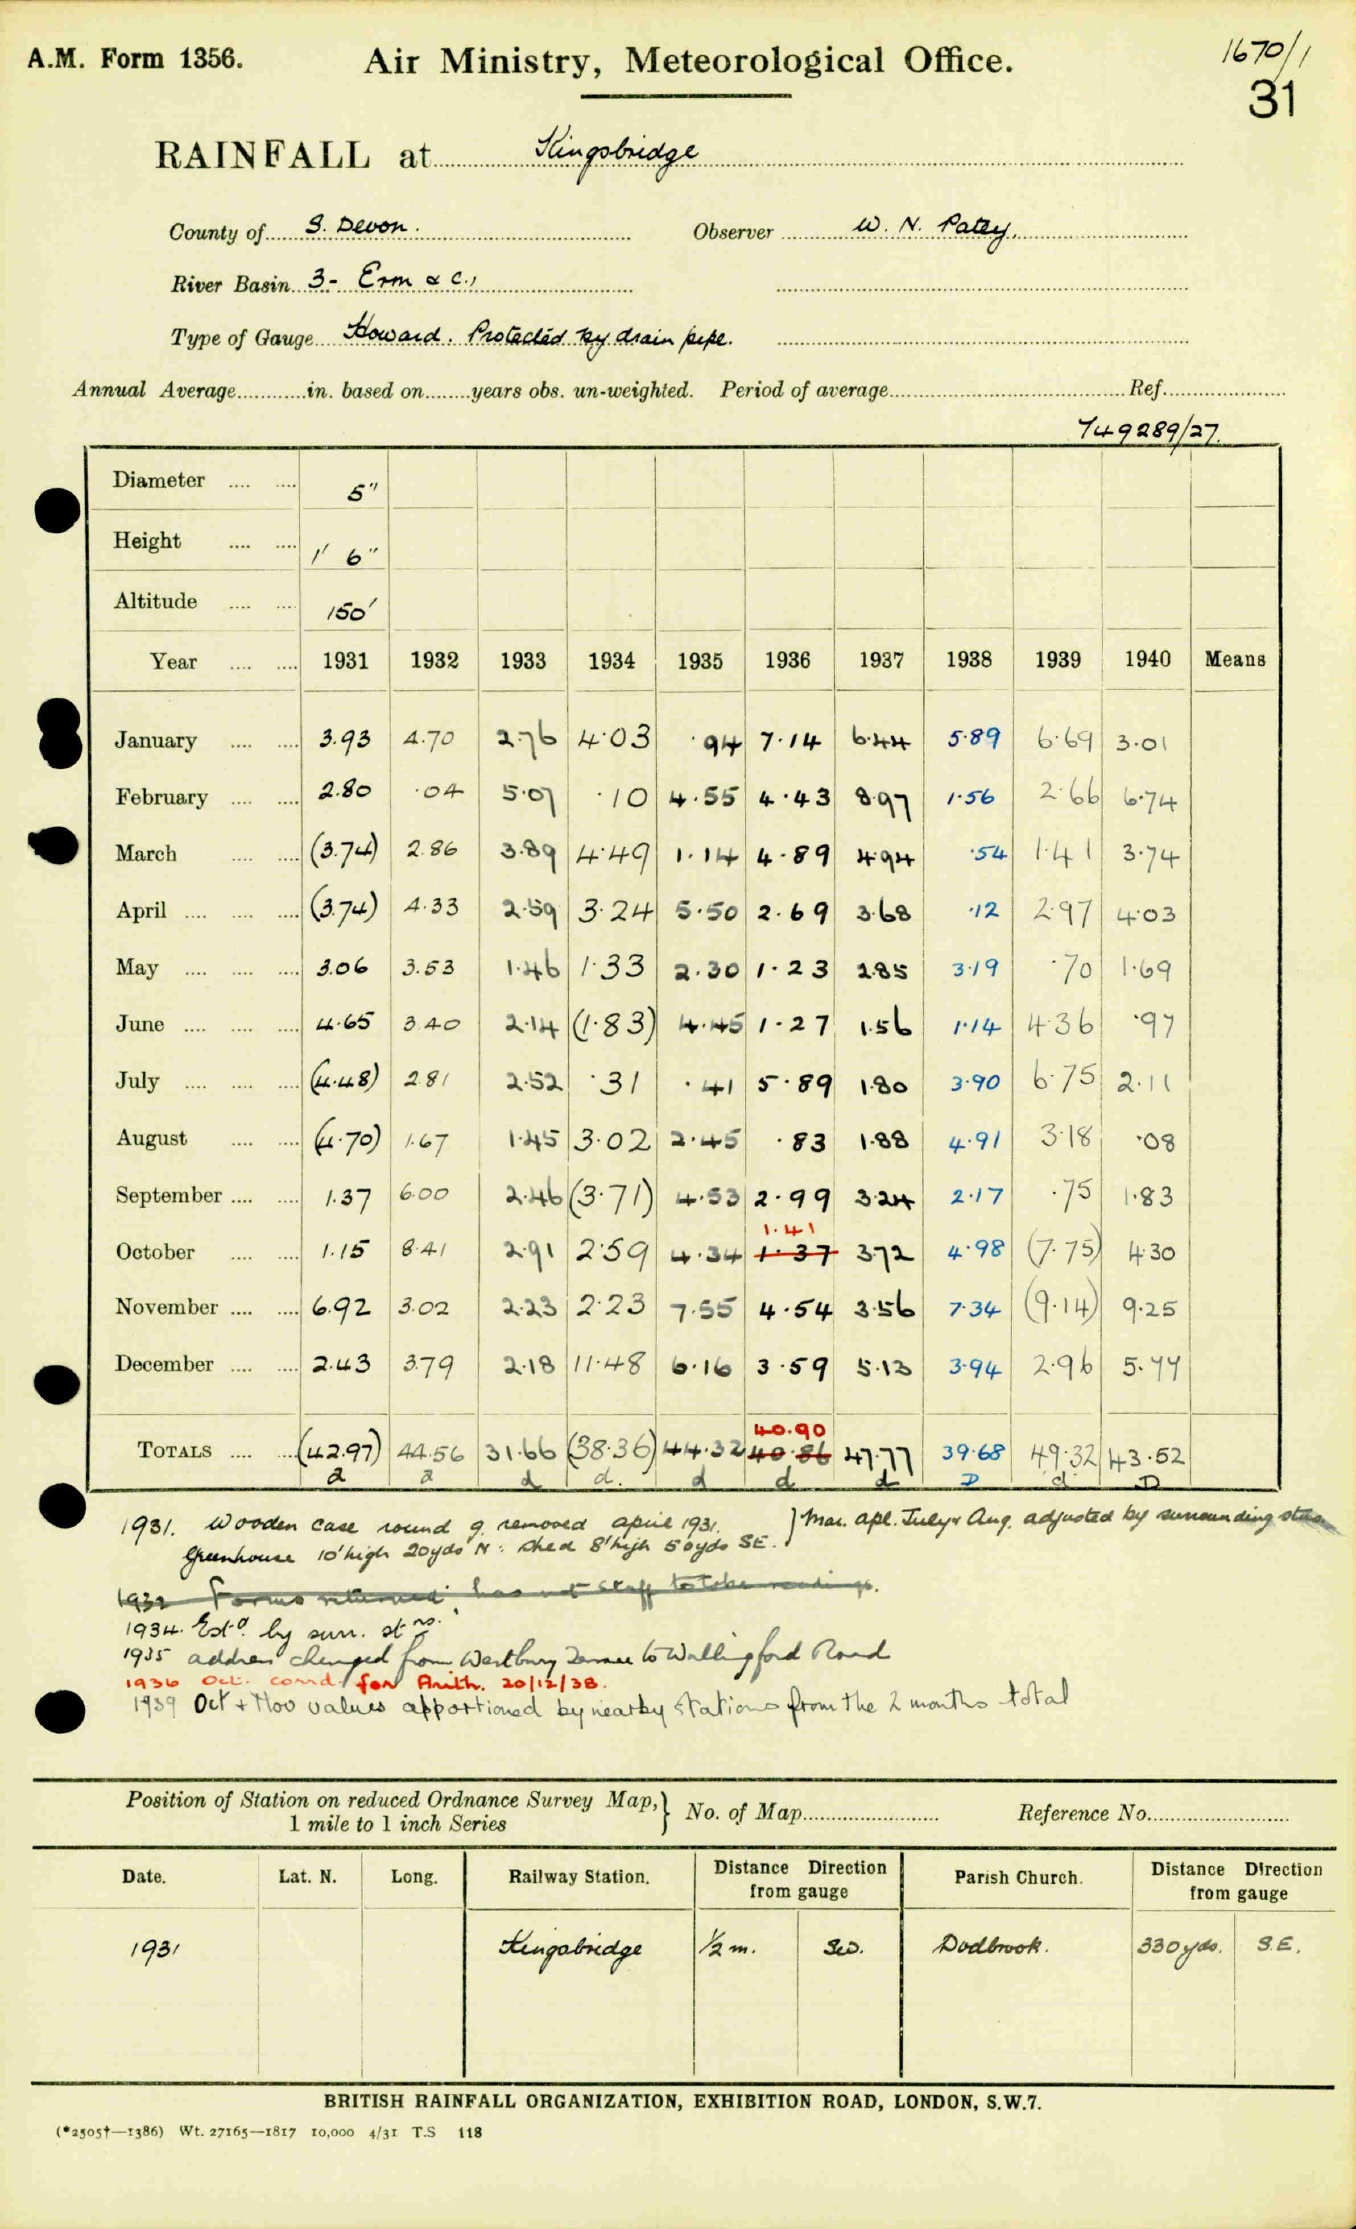 A.M. Form 1356.
Air Ministry, Meteorological Office.
1670/1
31
RAINFALL at Kingsbridge
County of S. Devon. Observer W. N. Patey.
River Basin 3- Erm & c.,
Type of Gauge Howard. Protected by drain pipe.
Annual Average in. based on years obs. un-weighted. Period of average Ref.
749289/27
Diameter 5"
Height 1' 6"
Altitude 150'
Year 1931 1932 1933 1934 1935 1936 1937 1938 1939 1940 Means
January 3.93 4.70 2.76 4.03 .94 7.14 6.44 5.89 6.69 3.01
February 2.80 .04 5.07 .10 4.55 4.43 8.97 1.56 2.66 6.74
March (3.74) 2.86 3.89 4.49 1.14 4.89 4.94 .54 1.41 3.74
April (3.74) 4.33 2.59 3.24 5.50 2.69 3.68 .12 2.97 4.03
May 3.06 3.53 1.46 1.33 2.30 1.23 2.85 3.19 .70 1.69
June 4.65 3.40 2.14 (1.83) 4.45 1.27 1.56 1.14 4.36 .97
July (4.48) 2.81 2.52 .31 .41 5.89 1.80 3.90 6.75 2.11
August (4.70) 1.67 1.45 3.02 2.45 .83 1.88 4.91 3.18 .08
September 1.37 6.00 2.46 (3.71) 4.53 2.99 3.24 2.17 .75 1.83
1.41
October 1.15 8.41 2.91 2.59 4.34 1.37 3.72 4.98 (7.75) 4.30
November 6.92 3.02 2.23 2.23 7.55 4.54 3.56 7.34 (9.14) 9.25
December 2.43 3.79 2.18 11.48 6.16 3.59 5.13 3.94 2.96 5.77
40.90
TOTALS (42.97) 44.56 31.66 (38.36) 44.32 40.86 47.77 39.68 49.32 43.52
a a d d. d d d D d D
1931. Wooden case round g. removed april 1931. } Mar. apl. July & Aug. adjusted by surrounding stns
Greenhouse 10' high 20yds N: Shed 8' high 50yds SE.
1932 Forms returned, has not staff to take readings.
1934. Estd. by surr. stns.
1935 address changed from Westbury Terrace to Wallingford Road
1936 Oct. corrd. for Arith. 20/12/38.
1939 Oct + Nov values apportioned by nearby stations from the 2 months total
Position of Station on reduced Ordnance Survey Map, } No. of Map Reference No.
1 mile to 1 inch Series
Date. Lat. N. Long. Railway Station. Distance Direction from gauge Parish Church. Distance Direction from gauge
1931 Kingsbridge 1/2 m. SW. Dodbrook. 330 yds. S.E.
BRITISH RAINFALL ORGANIZATION, EXHIBITION ROAD, LONDON, S.W.7.
(*2505†—1386) Wt. 27165—1817 10,000 4/31 T.S 118